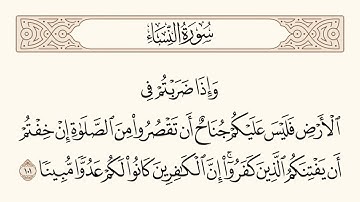 سُورَةُ النِّسَاءِ
وَإِذَا ضَرَبْتُمْ فِى
ٱلْأَرْضِ فَلَيْسَ عَلَيْكُمْ جُنَاحٌ أَن تَقْصُرُوا۟ مِنَ ٱلصَّلَوٰةِ إِنْ خِفْتُمْ
أَن يَفْتِنَكُمُ ٱلَّذِينَ كَفَرُوٓا۟ ۚ إِنَّ ٱلْكَٰفِرِينَ كَانُوا۟ لَكُمْ عَدُوًّا مُّبِينًا ١٠١